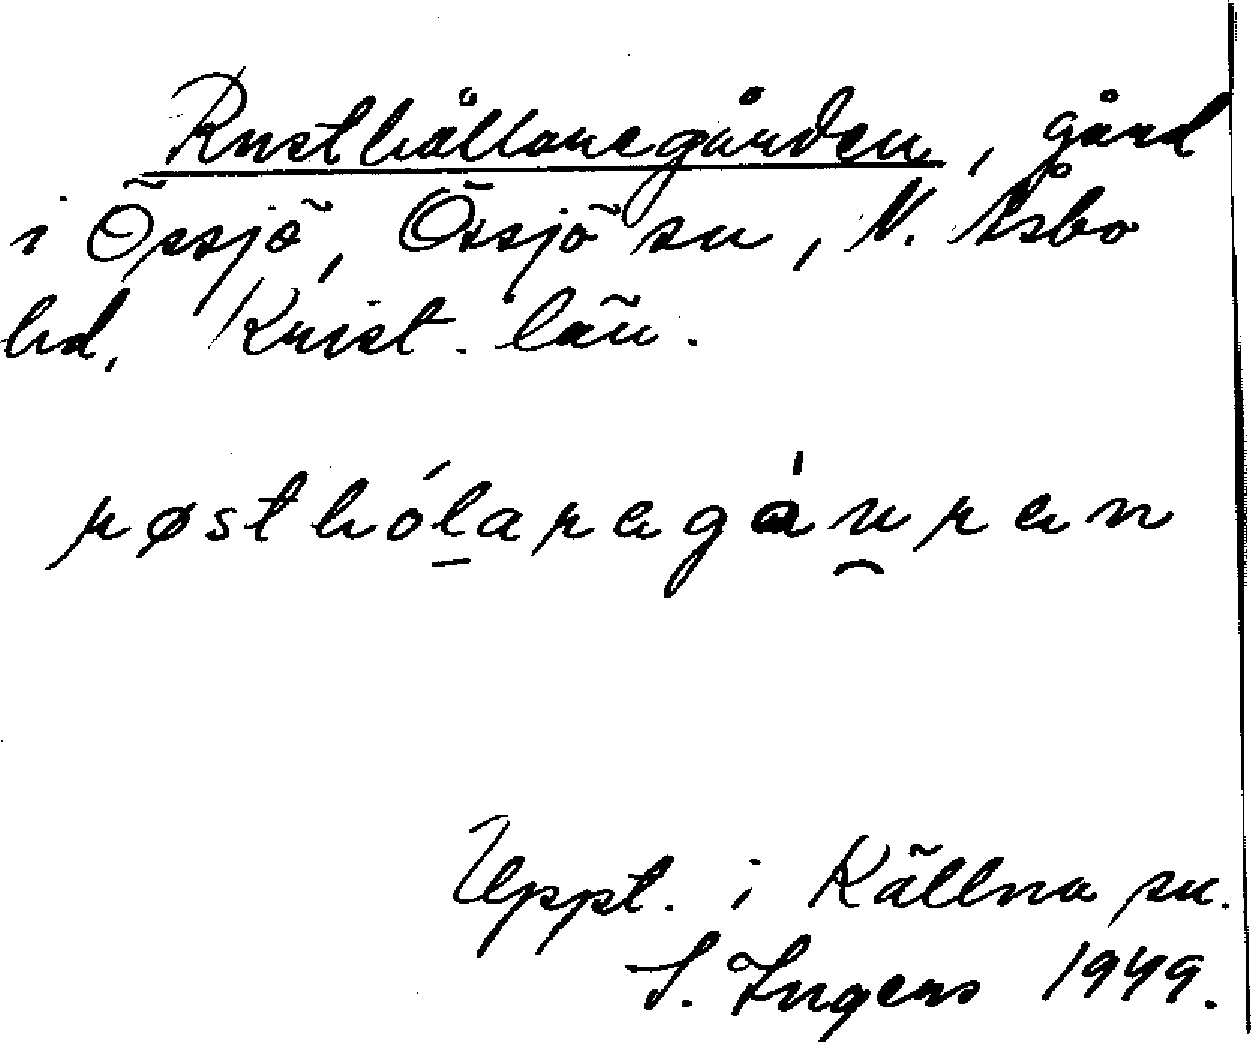 Rusthållaregården, gård
i Össjö, Össjö sn, N. Åsbo
hd, Krist. län.
røsthólaregáuren
Uppt. i Källna sn.
S. Ingers 1949.